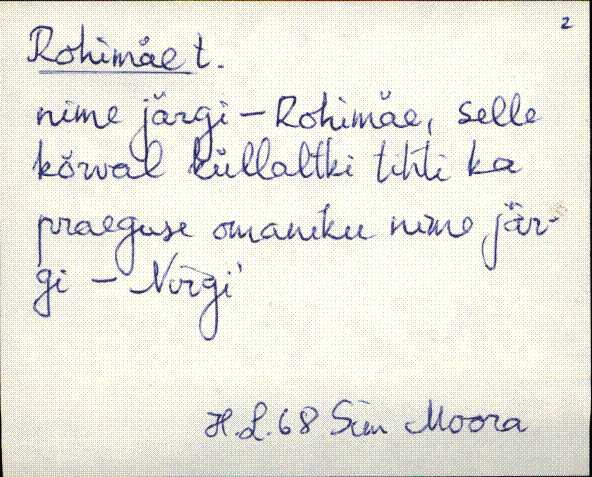 2
Rohimäe t.
nime järgi – Rohimäe, selle
kõrval küllaltki tihti ka
praeguse omaniku nime jär-
gi – Nurgi
H.L.68 Siim Moora